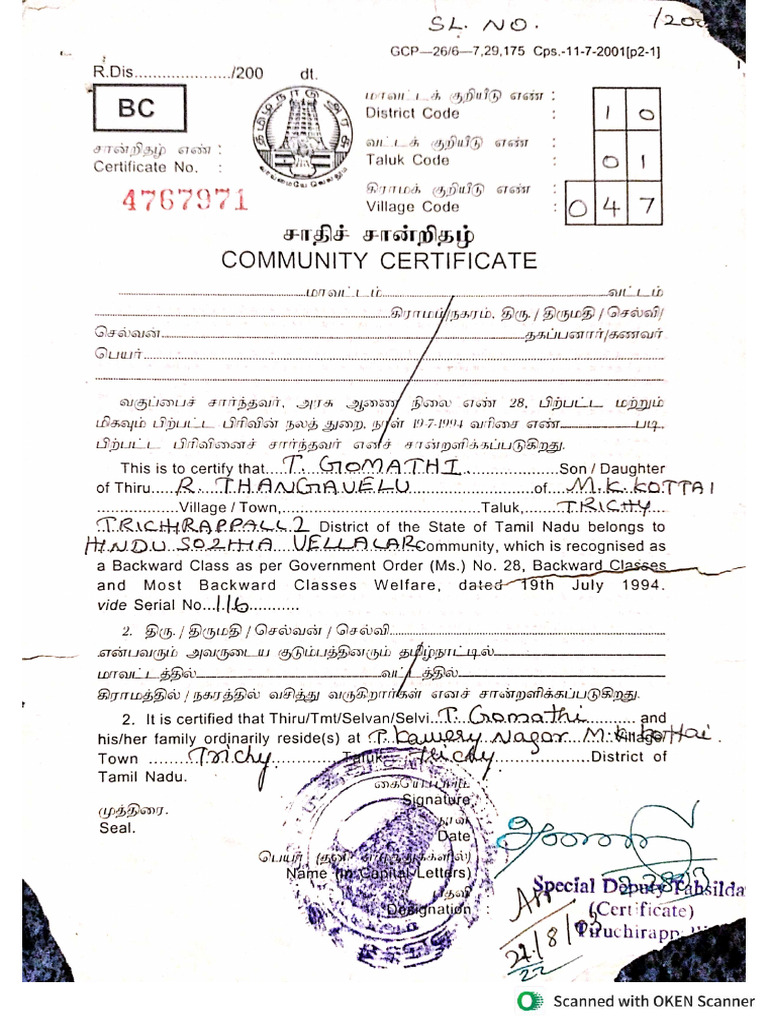 SL. NO. /200
GCP—26/6—7,29,175 Cps.-11-7-2001[p2-1]
R.Dis......................../200 dt.
BC
தமிழ்நாடு அரசு
வாய்மையே வெல்லும்
மாவட்டக் குறியீடு எண் :
District Code : 10
சான்றிதழ் எண் :
Certificate No. :
வட்டக் குறியீடு எண் :
Taluk Code : 01
4767971
கிராமக் குறியீடு எண் :
Village Code : 047
சாதிச் சான்றிதழ்
COMMUNITY CERTIFICATE
..............................மாவட்டம்..............................வட்டம்
..............................கிராமம்/நகரம். திரு. / திருமதி / செல்வி/
செல்வன்..............................தகப்பனார்/கணவர்
பெயர்..............................
வகுப்பைச் சார்ந்தவர், அரசு ஆணை நிலை எண் 28, பிற்பட்ட மற்றும்
மிகவும் பிற்பட்ட பிரிவின் நலத் துறை, நாள் 19-7-1994 வரிசை எண்...............படி.
பிற்பட்ட பிரிவினைச் சார்ந்தவர் எனச் சான்றளிக்கப்படுகிறது.
This is to certify that....T. GOMATHI....................Son / Daughter
of Thiru......R. THANGAVELU....................of....M.K.KOTTAI
....................Village / Town,..............................Taluk,....TRICHY....
TRICHIRAPPALLI District of the State of Tamil Nadu belongs to
HINDU SOZHIA VELLALAR Community, which is recognised as
a Backward Class as per Government Order (Ms.) No. 28, Backward Classes
and Most Backward Classes Welfare, dated 19th July 1994.
vide Serial No...116...........
2. திரு. / திருமதி / செல்வன் / செல்வி..............................
என்பவரும் அவருடைய குடும்பத்தினரும் தமிழ்நாட்டில்....................
மாவட்டத்தில்..............................வட்டத்தில்..............................
கிராமத்தில் / நகரத்தில் வசித்து வருகிறார்கள் எனச் சான்றளிக்கப்படுகிறது.
2. It is certified that Thiru/Tmt/Selvan/Selvi...T. Gomathi............and
his/her family ordinarily reside(s) at ... Kavery Nagar M.K.Kottai Village/
Town ........Trichy............Taluk...Trichy....................District of
Tamil Nadu.
கையொப்பம்
முத்திரை.
Signature
Seal.
நாள்
Date
பெயர் (தனி எழுத்துக்களில்)
Name (In Capital Letters)
பதவி
Designation :
Special Deputy Tahsilda
(Certificate)
Tiruchirappalli
Scanned with OKEN Scanner